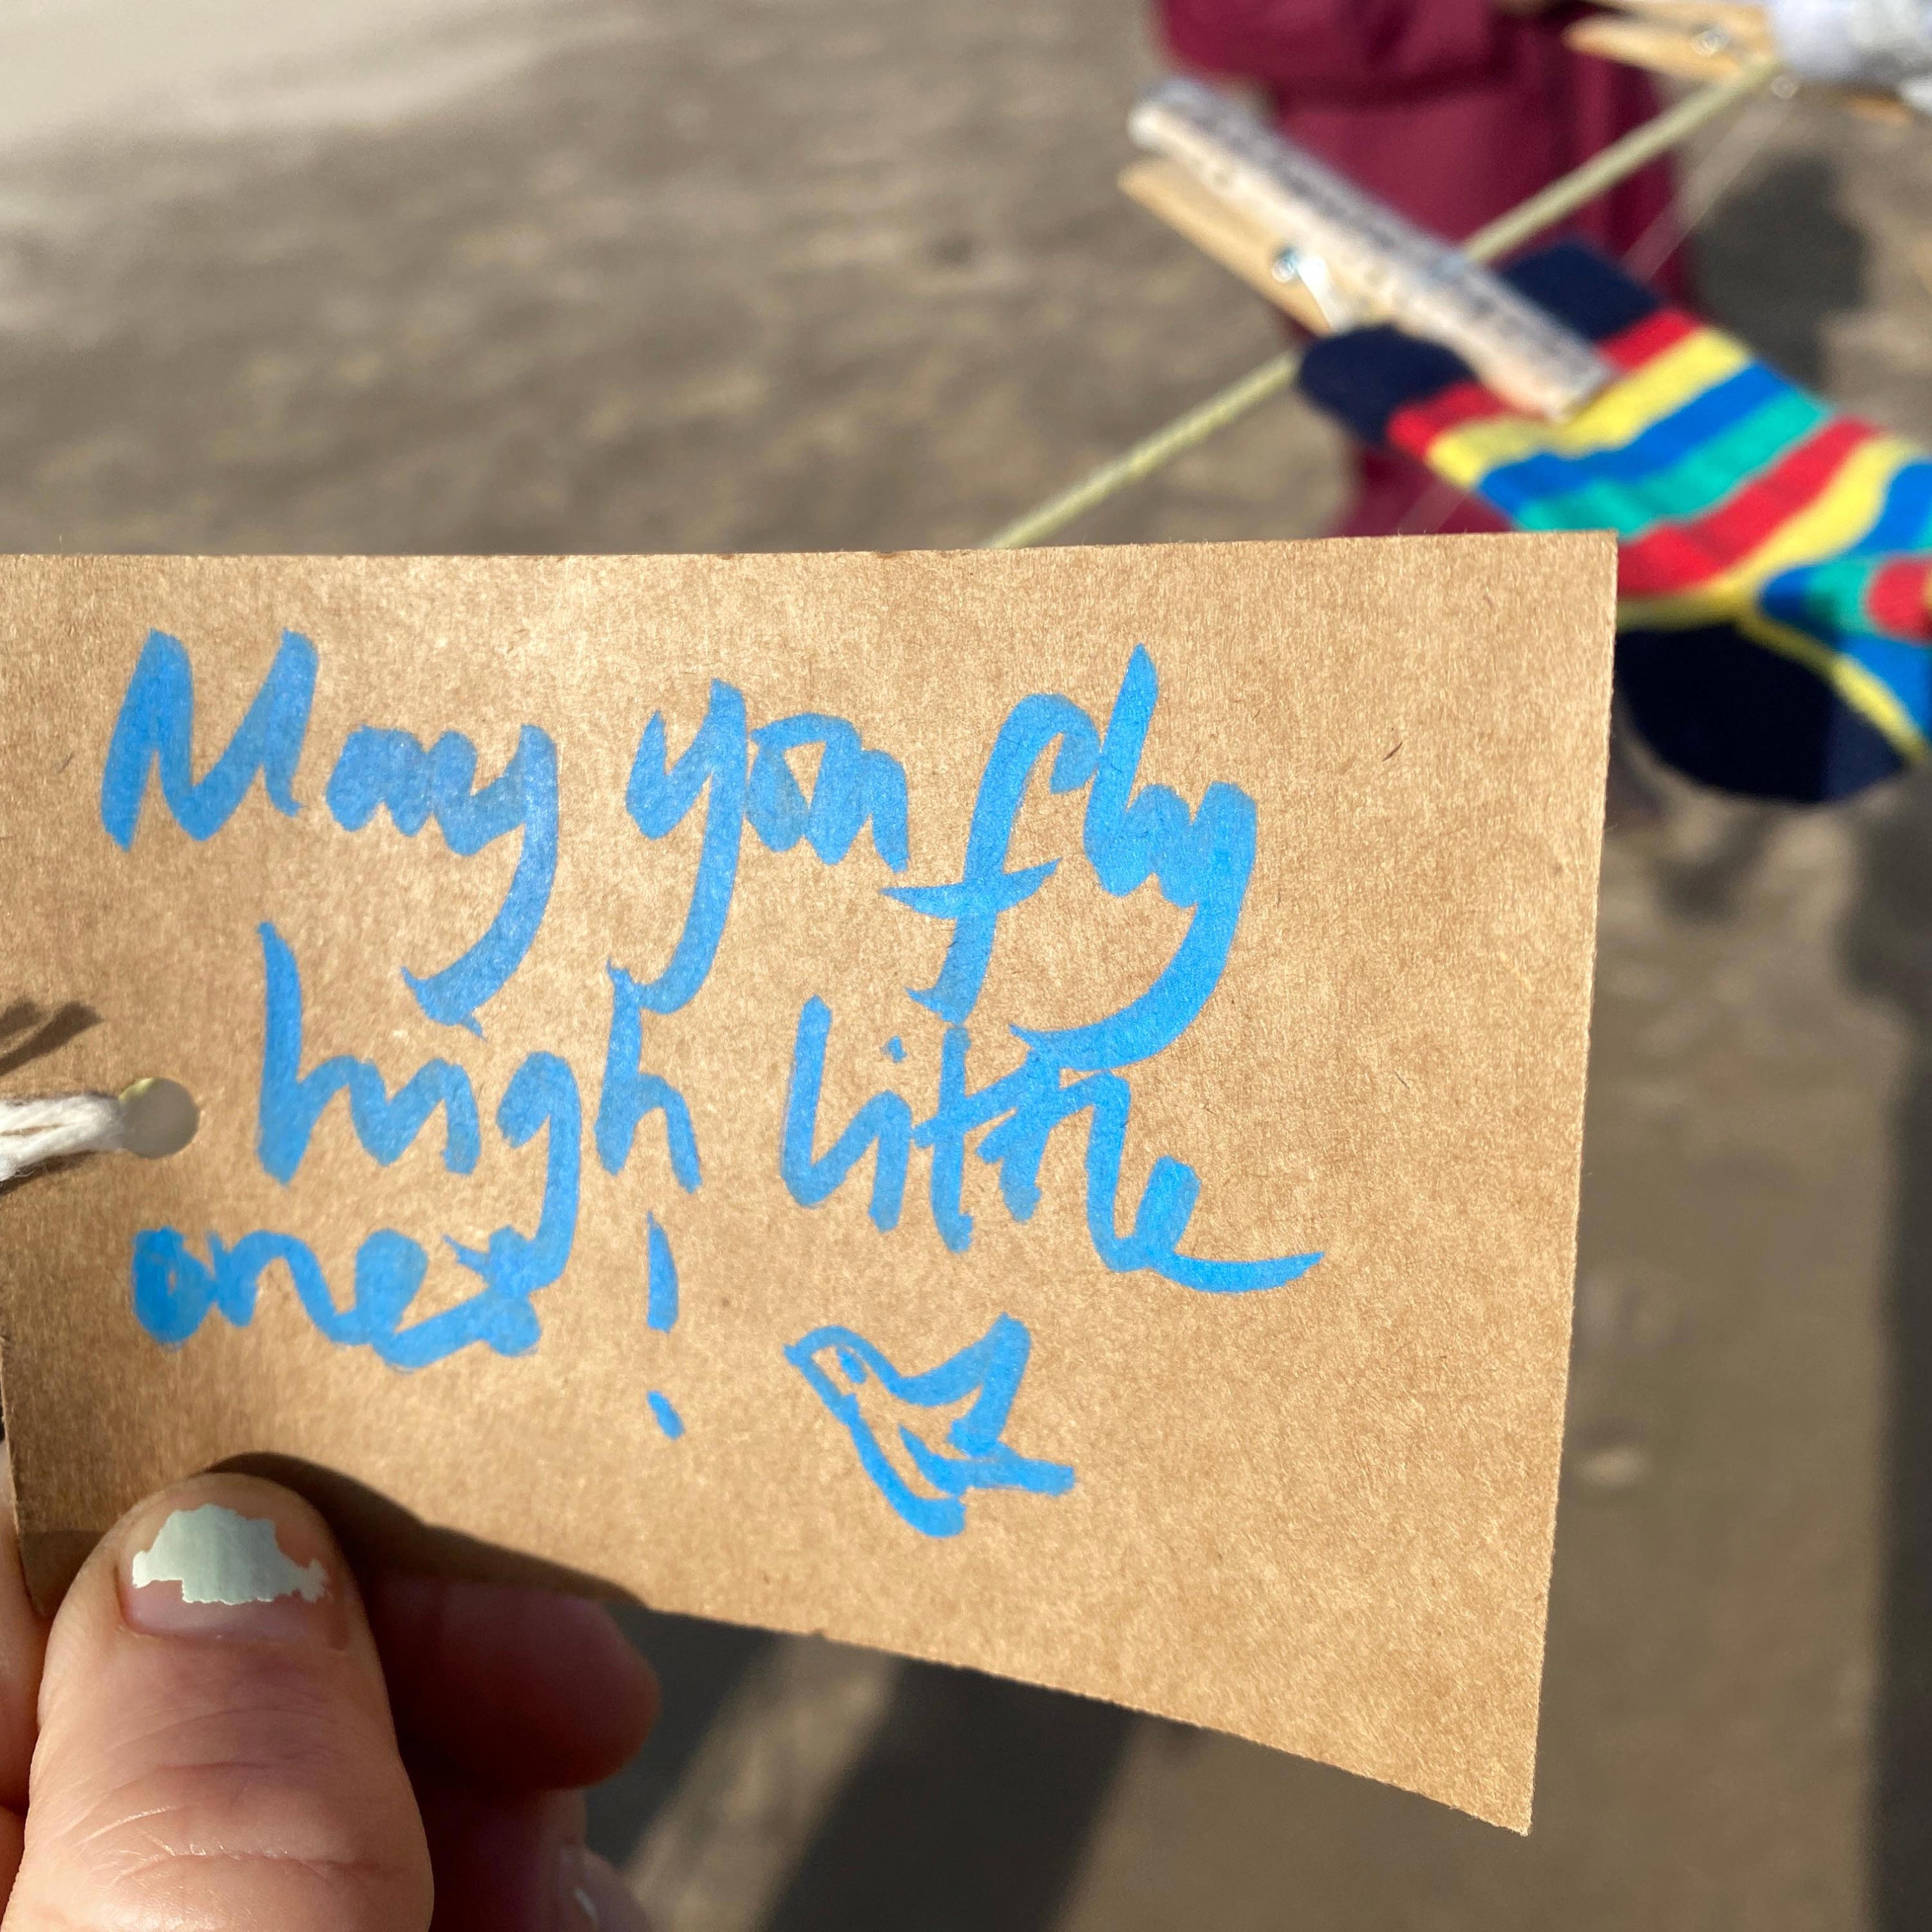 May you fly
high little
ones!